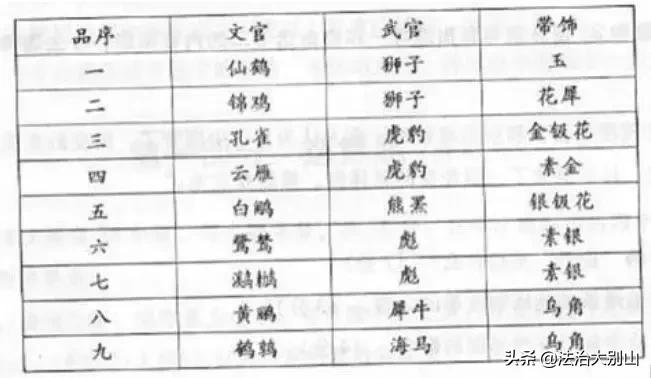 品序 文官 武官 带饰
一 仙鹤 狮子 玉
二 锦鸡 狮子 花犀
三 孔雀 虎豹 金钑花
四 云雁 虎豹 素金
五 白鹇 熊罴 银钑花
六 鹭鸶 彪 素银
七 彪 素银
八 黄鹂 犀牛 乌角
九 鹌鹑 海马 乌角
头条 @法治大别山